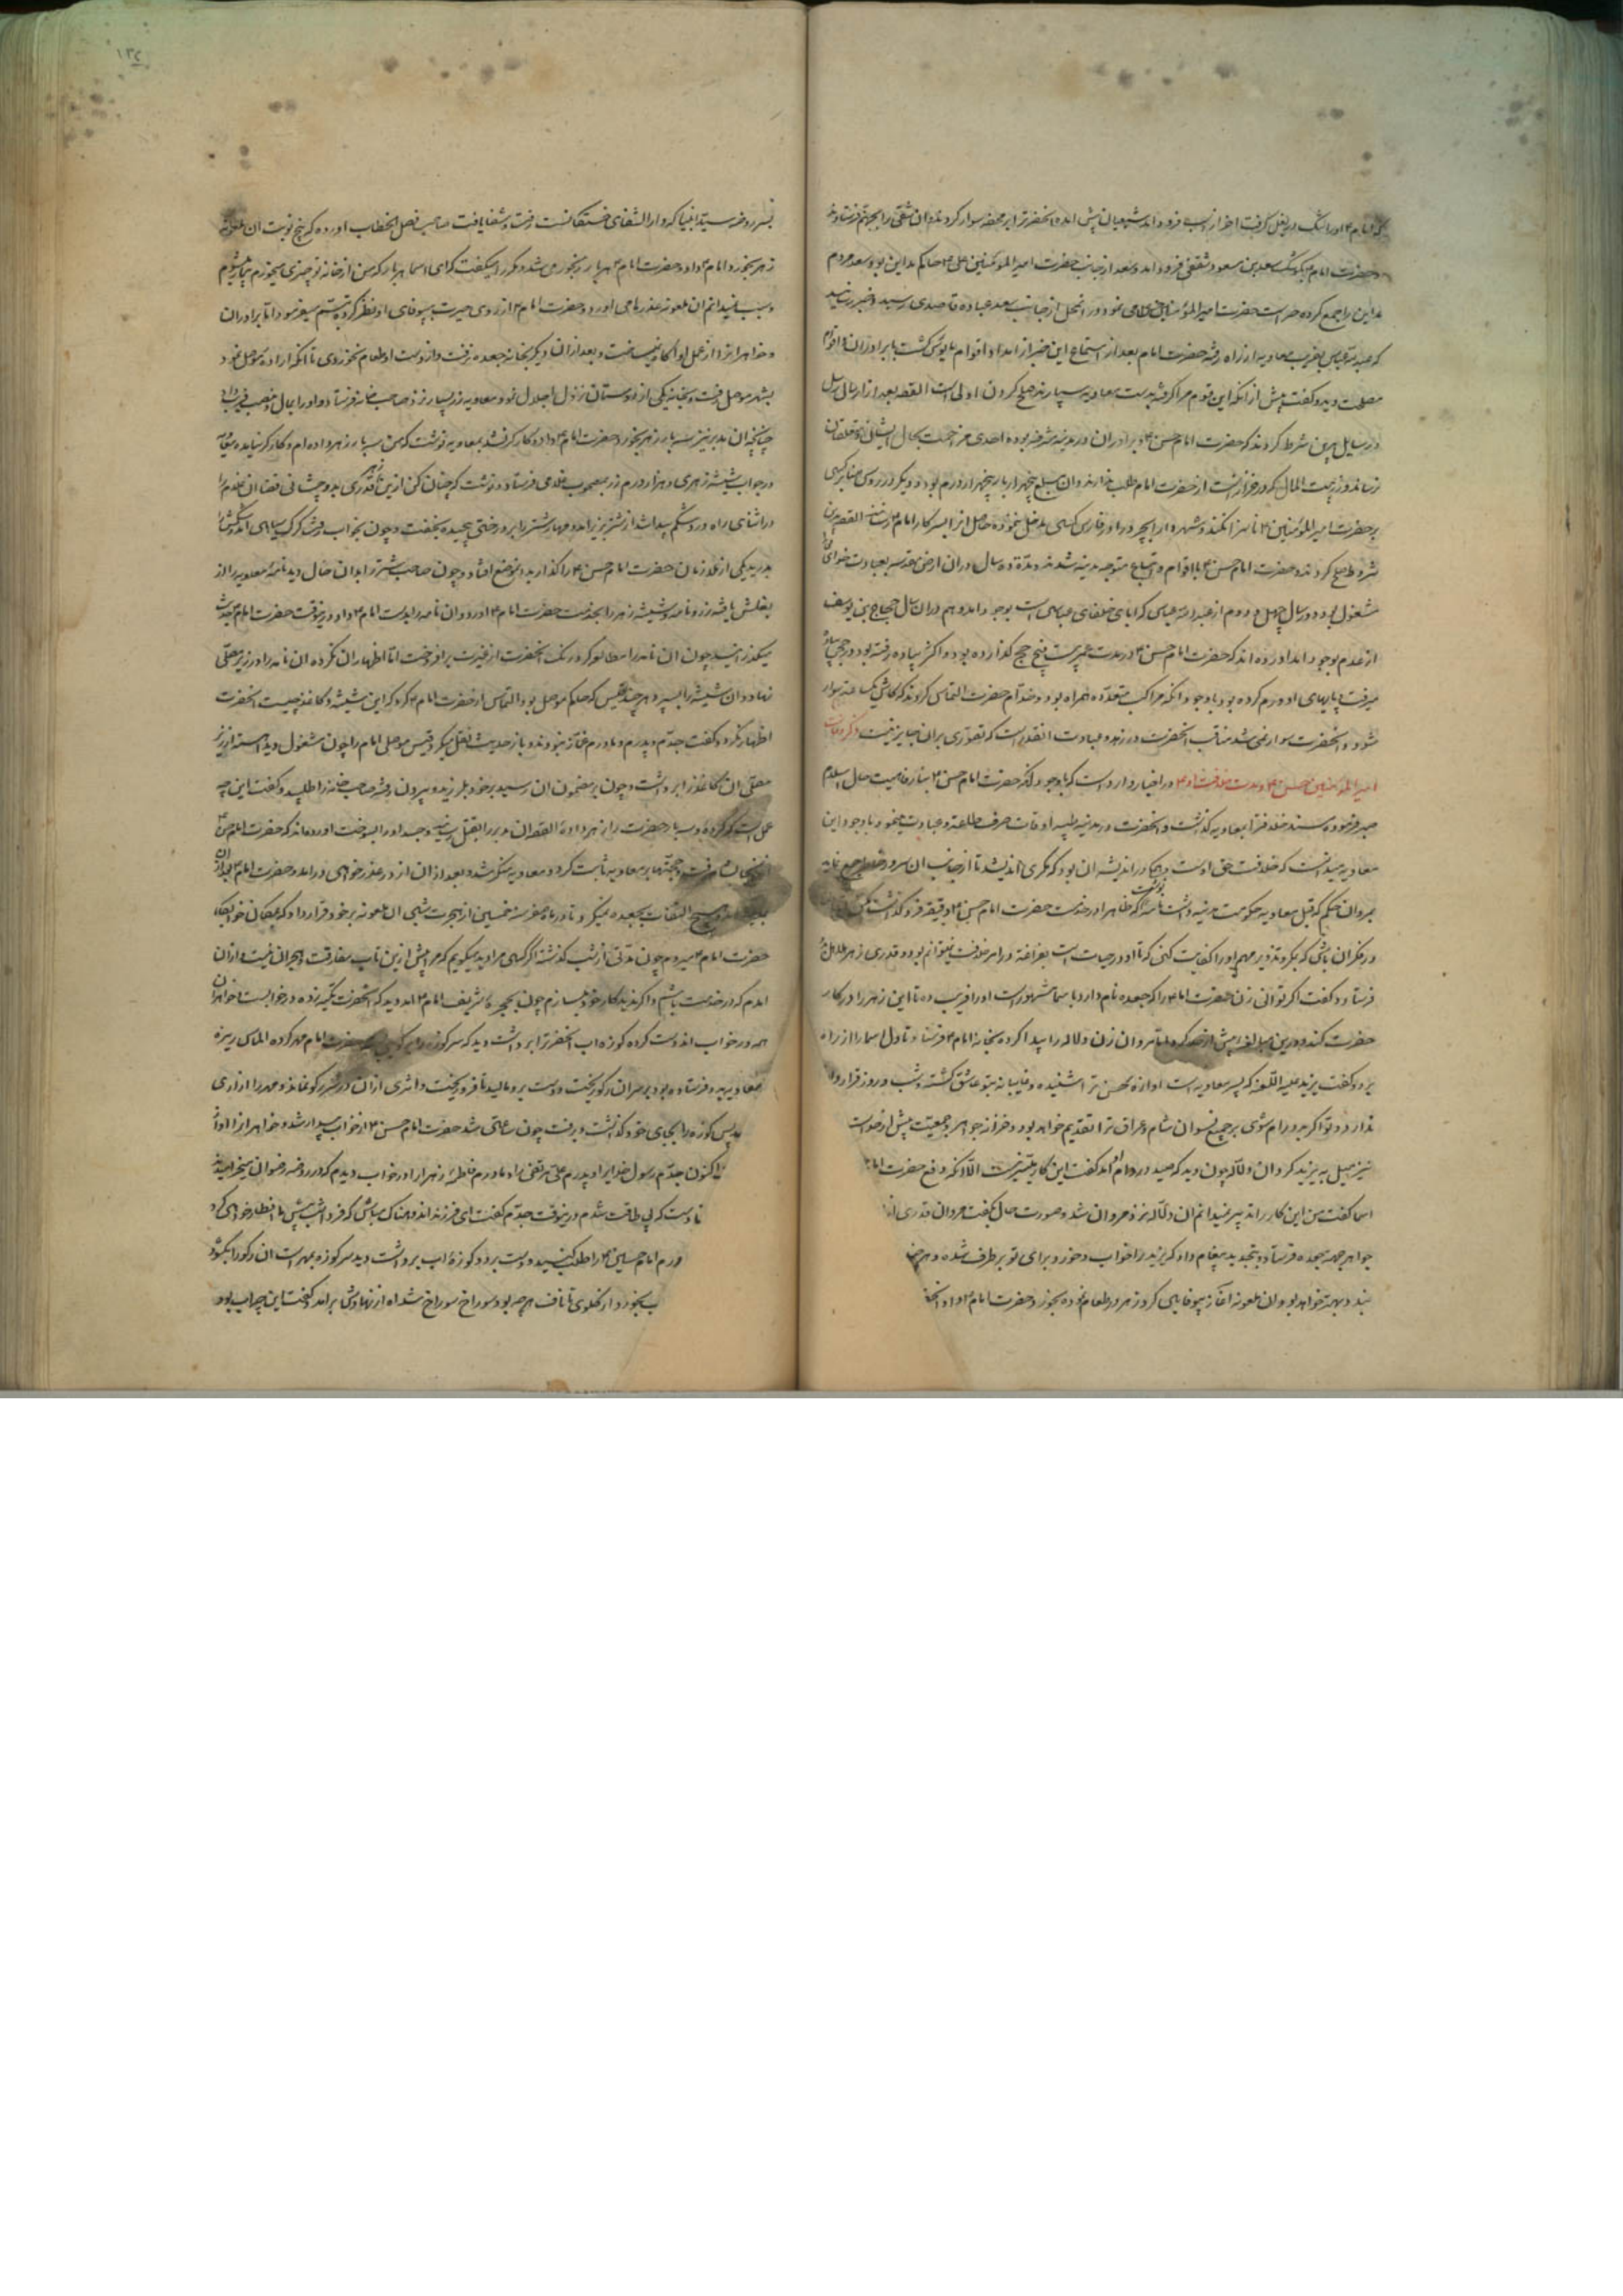 که امام ۴ اورا تنگ در بغل گرفت اخر از اسب فرود امد شیعیان پیش امده انحضرترا بر محفه سوار کردند و ان شقی را بجهنم فرستادند
و حضرت امام بکوشک سعد بن مسعود ثقفی فرود امد و سعد از جانب حضرت امیر المؤمنین علی ۴ حاکم مداین بود سعد مردم
مداین را جمع کرده حراست حضرت امیر المؤمنین می نمود در انمحل از جانب سعد عباده قاصدی رسید و خبر رسانید
که عبد الله عباس بفریب معاویه از راه رفته حضرت امام بعد از استماع این خبر از امداد اقوام مایوس گشت با برادران و اقوام
مصلحت دید و گفت پیش از انکه این قوم مرا گرفته بدست معاویه سپارند صلح کردن اولی است القصه بعد از ارسال رسل
و رسایل برین شرط کردند که حضرت امام حسن ۴ و برادران در مدینه مشرفه بوده احدی مزاحمت بحال ایشان و متعلقان
نرساند و زر بیت المال که در خزانه است از حضرت امام طلب ندارند و ان مبلغ پنجهزار بار پنجهزار درم بود و دیگر در روی منابر کسی
بر حضرت امیر المؤمنین ۴ ناسزا نکند و شهر دارابجرد را در فارس کسی مدخل ننموده حاصل انرا بسرکار امام ۴ رسانند القصه برین
شروط صلح کردند و حضرت امام حسن ۴ با اقوام و اتباع متوجه مدینه شدند و مدة ده سال در ان ارض مقدسه بعبادت خدای تعالی
مشغول بود و در سال چهل و دوم از عبد الله عباس که ابای خلفای عباسی است بوجود امد و هم در ان سال حجاج بن یوسف
از عدم بوجود امد اورده اند که حضرت امام حسن ۴ در مدت عمر بیست و پنج حج گذارده بود و اکثر پیاده رفته بود و در حجی پیاده
میرفت پایهای او ورم کرده بود با وجود انکه مراکب متعدده همراه بود و خدام حضرت التماس کردند که کاش یکساعته سوار
شود و انحضرت سوار نمی شد مناقب انحضرت در زهد و عبادت انقدر است که تصوری بر ان جایز نیست ذکر وفات
امیر المؤمنین حسن ۴ و مدت خلافت او ۴ در اخبار وارد است که با وجود انکه حضرت امام حسن ۴ بنا بر رفاهیت حال اسلام
صبر فرموده مسند خلافترا بمعاویه گذاشت و انحضرت در مدینه طیبه اوقات صرف طاعة و عبادت مینمود با وجود این
معاویه میدانست که خلافت حق اوست و همیشه در اندیشه ان بود که مکری اندیشد تا از جانب ان سرور خاطر جمع نماید
مروان حکم که از قبل معاویه حکومت مدینه داشت نامه نوشت که ظاهرا در خدمت حضرت امام حسن ۴ دقیقه فرو گذاشت مکن
و در فکر ان باش که بمکر و تذویر مهم او را کفایت کنی که تا او در حیات است بفراغت در امر خلافت نمیتوانم بود و قدری زهر هلاهل
فرستاد و گفت اگر توانی زن حضرت امام ۴ را که جعده نام دارد با سما مشهور است او را فریب ده تا این زهر را در کار
حضرت کند و درین مبالغه بیش از حد کرده مروان زن دلاله را پیدا کرده بخانه امام ۴ فرستاد تا دل اسما را از راه
برد و گفت یزید علیه اللعنه که پسر معاویه است اوازه حسن ترا شنیده و غایبانه بتو عاشق گشته و شب و روز قرار
ندارد و تو اگر بدو رام شوی بر جمیع نسوان شام و عراق ترا تقدیم خواهد بود و خزانه جواهر و جمعیت بیش از خواست
نیز میل به یزید کرد ان دلاله چون دید که صید در دام امد گفت این کار میسر نیست الا انکه دفع حضرت امام
اسما گفت من این کار را تدبیر نمیدانم ان دلاله نزد مروان شد و صورت حال بگفت مروان قدری از
جواهر جهة جعده فرستاد و بتجدید پیغام داد که یزید را خواب و خور در برای تو بر طرف شده و هر
شد و بهتر خواهد بود و ان ملعونه اغاز بیوفایی کرد زهر در طعام نموده بخورد حضرت امام ۴ داد
بسر روضه سید انبیا که دار الشفای خستگانست رفت و شفا یافت صاحب فصل الخطاب اورده که پنج نوبت ان ملعونه
زهر بخورد امام ۴ داد و حضرت امام ۴ هر بار رنجور می شد و مکرر میگفت که ای اسما هر بار که من از خانه تو چیزی میخورم بیمار میشوم
و سبب نمیدانم ان ملعونه عذرها می اورد و حضرت امام ۴ از روی حیرت به بیوفای او نظر کرده تبسم میفرمود اما برادران
و خواهرانرا از عمل او اگاه نمیساخت و بعد از ان دیگر بخانه جعده نرفت و از دست او طعام نخوردی تا انکه اراده موصل نمود
بشهر موصل رفت و بخانه یکی از دوستان نزول اجلال نمود معاویه زر بسیار نزد صاحب خانه فرستاد و او را بمال و منصب فریب داد
چنانچه ان مدبر نیز سه بار زهر بخورد حضرت امام ۴ داد و کارگر نشد بمعاویه نوشت که من سه بار زهر داده ام و کارگر نیامده معاویه
در جواب شیشه زهری و هزار درم زر بمصحوب غلامی فرستاد و نوشت که چنان کن ازین زهر قدری بدو چشانی قضا ان غلام را
در اثنای راه درد شکم پیدا شد از شتر بزیر امد و مهار شتر را بر درختی پیچیده بخفت و چون بخواب رفت گرگ سیاهی امد و شکمش را
بدرید یکی از ملازمان حضرت امام حسن ۴ را گذار بدان موضع افتاد و چون صاحب شتر را بدان حال دید نامهٔ معاویه را از
بغلش یافته زر و نامه و شیشه زهر را بخدمت حضرت امام ۴ اورد و ان نامه را بدست امام ۴ داد و درینوقت حضرت امام حدیث
میگذرانید چون ان نامه را مطالعه کرد رنگ انحضرت از غیرت برافروخت اما اظهار ان نکرده ان نامه را در زیر مصلی
نهاد و ان شیشه را بسپرد هر چند قیس که حاکم موصل بود التماس از حضرت امام ۴ کرد که این شیشه و کاغذ چیست انحضرت
اظهار نکرد و گفت جدم و پدرم و مادرم غماز نبودند و باز حدیث نقل میکرد قیس موصلی امام را چون مشغول دید اهسته از زیر
مصلی ان کاغذ را برداشت و چون بر مضمون ان رسید بر خود بلرزید و بیرون رفته صاحب خانه را طلبید و گفت این چه
عمل است که کرده و سه بار حضرت را زهر داده القصه ان مدبر را بقتل رسانید و جسد او را بسوخت اورده اند که حضرت امام حسن ۴
رفت و حجتها بر معاویه ثابت کرد و معاویه منکر شد و بعد از ان از در عذر خواهی در امد و حضرت امام ۴ بعد از ان
امد و هیچ التفات بجعده نمیکرد تا در ماه صفر سنه خمسین از هجرت شبی ان ملعونه بر خود قرار داد که بمکان خوابگاه
حضرت امام ۴ میروم چون مدتی از شب گذشته اگر کسی مرا دید میگویم که مرا بیش ازین تاب مفارقت و هجران نیست از ان
امدم که در خدمت باشم و اگر ندید کار خود میسازم چون بحجرهٔ شریف امام ۴ امد دید که انحضرت تکیه زده در خوابست خواهران
همه در خواب اند دست کرده کوزه اب انحضرترا برداشت دید که سر کوزه حضرت امام مهر کرده الماس ریزه
معاویه بدو فرستاده بود بر سر ان رکو ریخت و دست برو مالید تا فرو ریخت و اثری از ان در سر رکو نماند و مهر را ازاری
پس کوزه را بجای خود گذاشت و برفت چون ساعتی شد حضرت امام حسن ۴ از خواب بیدار شد و خواهرانرا اواز
اکنون جدم رسول خدایرا و پدرم علی مرتضی را و مادرم فاطمهٔ زهرا را در خواب دیدم که در روضه رضوان میخرامیدند
تا دست که بی طاقت شدم درینوقت جدم گفت ای فرزند اندوهناک مباش که فردا شب پیش ما افطار خواهی کرد
ورم امام حسین ۴ را طلب کنید و دست برد و کوزهٔ اب برداشت دید سر کوزه بمهر است ان رکو را بگشود
بخورد از گلوی تا ناف هر چه بود سوراخ سوراخ شد اه از نهادش برامد و گفت این چه اب بود